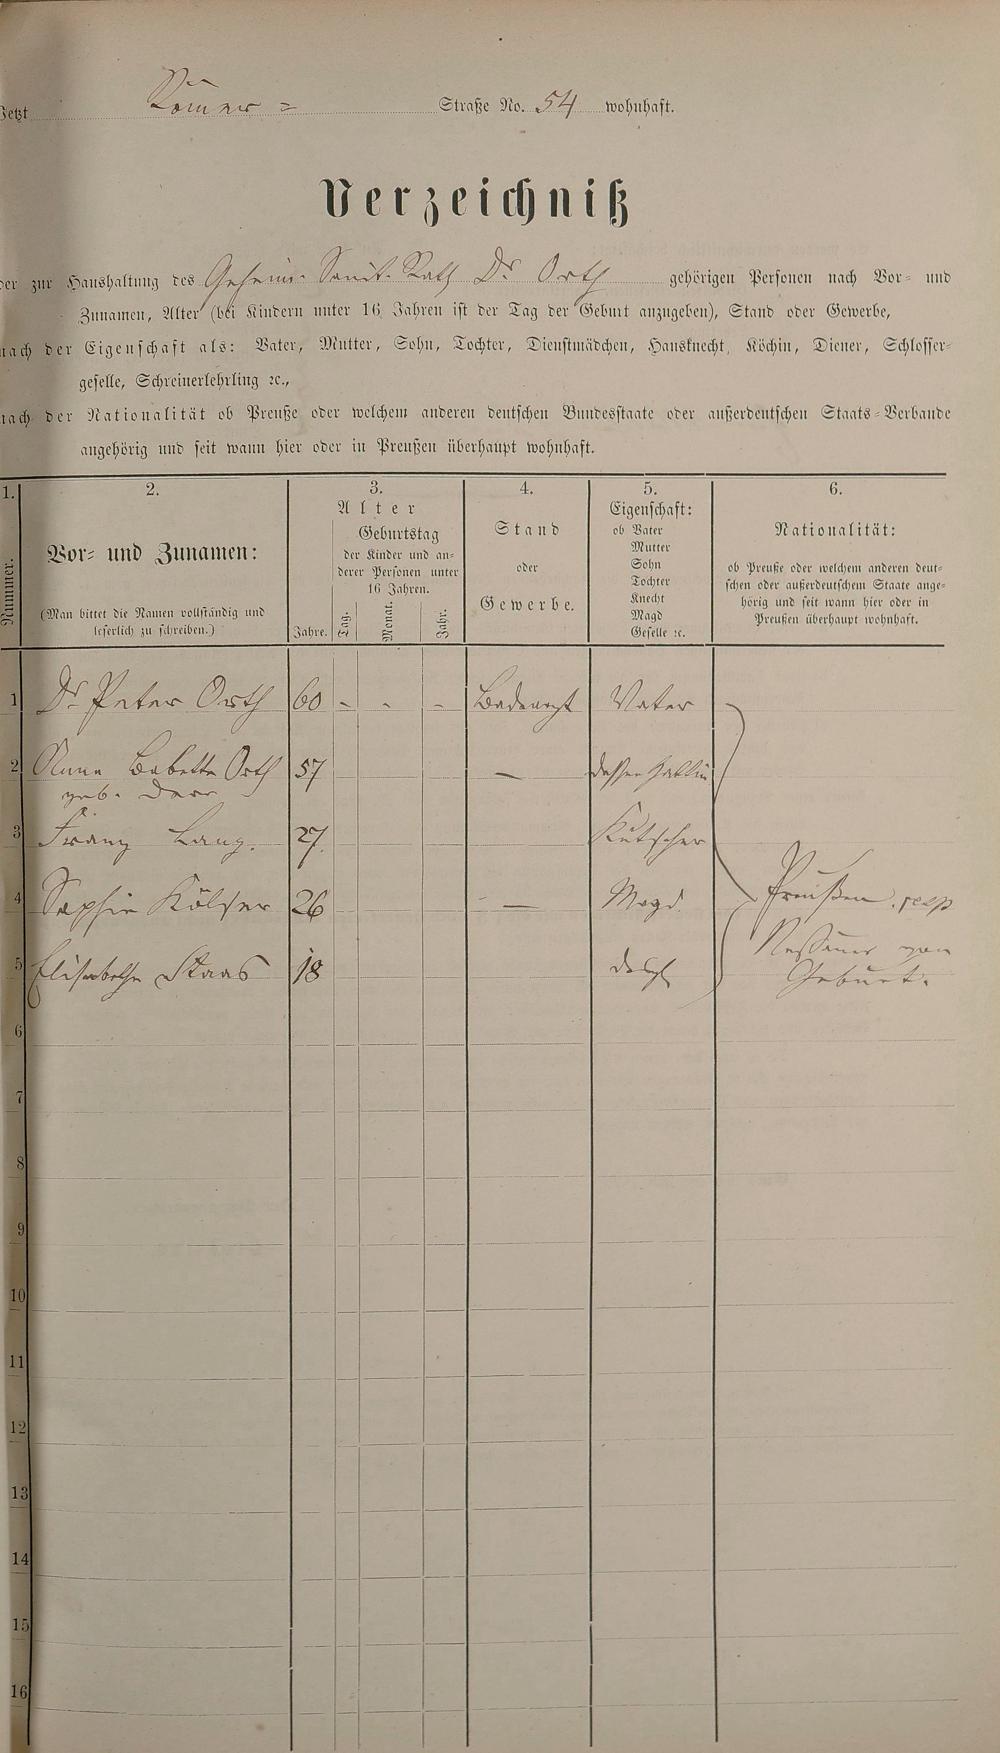 Jetzt Römer = Straße No. 54 wohnhaft.
Verzeichniß
der zur Haushaltung des Geheim. Sanit. Rath Dr Orth gehörigen Personen nach Vor- und
Zunamen, Alter (bei Kindern unter 16 Jahren ist der Tag der Geburt anzugeben), Stand oder Gewerbe,
nach der Eigenschaft als: Vater, Mutter, Sohn, Tochter, Dienstmädchen, Hausknecht, Köchin, Diener, Schlosser-
geselle, Schreinerlehrling ꝛc.,
nach der Nationalität ob Preuße oder welchem anderen deutschen Bundesstaate oder außerdeutschen Staats-Verbande
angehörig und seit wann hier oder in Preußen überhaupt wohnhaft.
1. 2. 3. 4. 5. 6.
Nummer.
Vor- und Zunamen:
(Man bittet die Namen vollständig und
leserlich zu schreiben.)
Alter
Jahre.
Geburtstag
der Kinder und an-
derer Personen unter
16 Jahren.
Tag. Monat. Jahr.
Stand
oder
Gewerbe.
Eigenschaft:
ob Vater
Mutter
Sohn
Tochter
Knecht
Magd
Geselle ꝛc.
Nationalität:
ob Preuße oder welchem anderen deut-
schen oder außerdeutschem Staate ange-
hörig und seit wann hier oder in
Preußen überhaupt wohnhaft.
1 Dr Peter Orth 60 - - - Badearzt Vater
2 Anna Babette Orth 57 — dessen Gattin
geb.
3 Franz Lang. 27. Kutscher
4 Sophie Kölser 26 — Magd.
Preußen. resp
5 Elisabethe Staas 18 desgl
Nassauer von
Geburt.
6
7
8
9
10
11
12
13
14
15
16